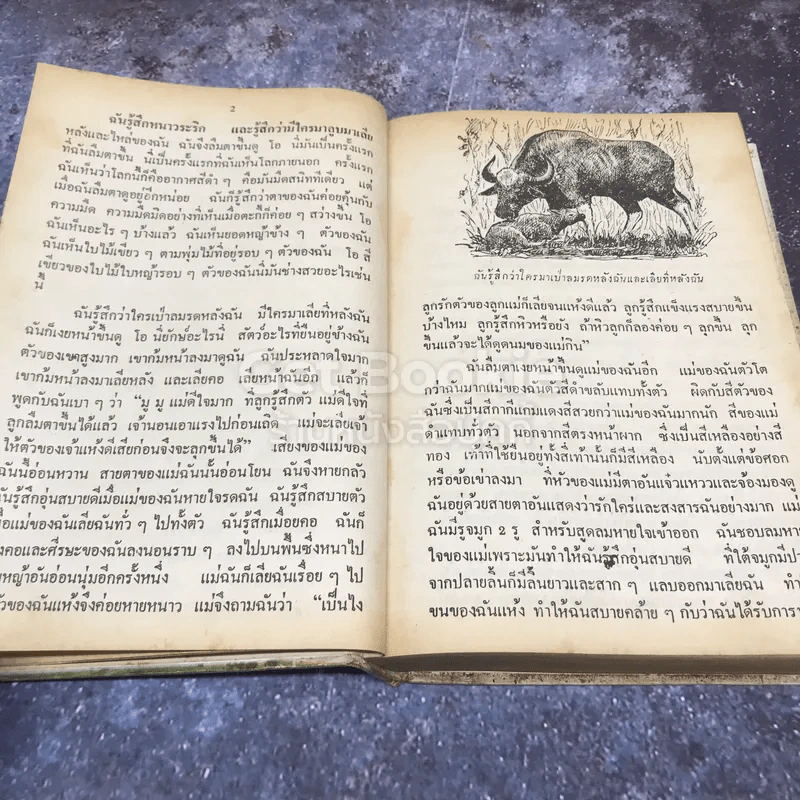 2
ฉันรู้สึกหนาวระริก และรู้สึกว่ามีใครมาลูบมาเลีย
หลังและไหล่ของฉัน ฉันจึงลืมตาขึ้นดู โอ นี่มันเป็นครั้งแรก
ที่ฉันลืมตาขึ้น นี่เป็นครั้งแรกที่ฉันเห็นโลกภายนอก ครั้งแรก
ฉันเห็นว่าโลกนี้ก็คืออากาศสีดำ ๆ คือมันมืดสนิททีเดียว แต่
เมื่อฉันลืมตาดูอยู่อีกหน่อย ฉันก็รู้สึกว่าตาของฉันค่อยคุ้นกับ
ความมืด ความมืดมิดอย่างที่เห็นเมื่อตะกี้ก็ค่อย ๆ สว่างขึ้น โอ
ฉันเห็นอะไร ๆ บ้างแล้ว ฉันเห็นยอดหญ้าข้าง ๆ ตัวของฉัน
ฉันเห็นใบไม้เขียว ๆ ตามพุ่มไม้ที่อยู่รอบ ๆ ตัวของฉัน โอ สี
เขียวของใบไม้ใบหญ้ารอบ ๆ ตัวของฉันนี่มันช่างสวยอะไรเช่น
นี้
ฉันรู้สึกว่าใครเป่าลมรดหลังฉัน มีใครมาเลียที่หลังฉัน
ฉันก็เงยหน้าขึ้นดู โอ นี่ยักษ์อะไรนี่ สัตว์อะไรที่ยืนอยู่ข้างฉัน
ตัวของเขาสูงมาก เขาก้มหน้าลงมาดูฉัน ฉันประหลาดใจมาก
เขาก้มหน้าลงมาเลียหลัง และเลียคอ เลียหน้าฉันอีก แล้วก็
พูดกับฉันเบา ๆ ว่า “มู มู แม่ดีใจมาก ที่ลูกรู้สึกตัว แม่ดีใจที่
ลูกลืมตาขึ้นได้แล้ว เจ้านอนเอาแรงไปก่อนเถิด แม่จะเลียเจ้า
ให้ตัวของเจ้าแห้งดีเสียก่อนจึงจะลุกขึ้นได้” เสียงของแม่ของ
ฉันนี้อ่อนหวาน สายตาของแม่ฉันนั้นอ่อนโยน ฉันจึงหายกลัว
ฉันรู้สึกอุ่นสบายดีเมื่อแม่ของฉันหายใจรดฉัน ฉันรู้สึกสบายตัว
เมื่อแม่ของฉันเลียฉันทั่ว ๆ ไปทั้งตัว ฉันรู้สึกเมื่อยคอ ฉันก็
คอและศีรษะของฉันลงนอนราบ ๆ ลงไปบนพื้นซึ่งหนาไป
หญ้าอันอ่อนนุ่มอีกครั้งหนึ่ง แม่ฉันก็เลียฉันเรื่อย ๆ ไป
ตัวของฉันแห้งจึงค่อยหายหนาว แม่จึงถามฉันว่า “เป็นไง
ฉันรู้สึกว่าใครมาเป่าลมรดหลังฉันและเลียที่หลังฉัน
ลูกรักตัวของลูกแม่ก็เลียจนแห้งดีแล้ว ลูกรู้สึกแข็งแรงสบายขึ้น
บ้างไหม ลูกรู้สึกหิวหรือยัง ถ้าหิวลูกก็ลองค่อย ๆ ลุกขึ้น ลุก
ขึ้นแล้วจะได้ดูดนมของแม่กิน”
ฉันลืมตาเงยหน้าขึ้นดูแม่ของฉันอีก แม่ของฉันตัวโต
กว่าฉันมากแม่ของฉันตัวสีดำขลับแทบทั้งตัว ผิดกับสีตัวของ
ฉันซึ่งเป็นสีกากีแกมแดงสีสวยกว่าแม่ของฉันมากนัก สีของแม่
ดำแทบทั่วตัว นอกจากสีตรงหน้าผาก ซึ่งเป็นสีเหลืองอย่างสี
ทอง เท้าที่ใช้ยืนอยู่ทั้งสี่เท้านั้นก็มีสีเหลือง นับตั้งแต่ข้อศอก
หรือข้อเข่าลงมา ที่หัวของแม่มีตาอันแจ๋วแหววและจ้องมองดู
ฉันอยู่ด้วยสายตาอันแสดงว่ารักใคร่และสงสารฉันอย่างมาก แม่
ฉันมีรูจมูก 2 รู สำหรับสูดลมหายใจเข้าออก ฉันชอบลมหา
ใจของแม่เพราะมันทำให้ฉันรู้สึกอุ่นสบายดี ที่ใต้จมูกมีปา
จากปลายลิ้นก็มีลิ้นยาวและสาก ๆ แลบออกมาเลียฉัน ทำ
ขนของฉันแห้ง ทำให้ฉันสบายคล้าย ๆ กับว่าฉันได้รับการ
Get Books
ร้านหนังสือ